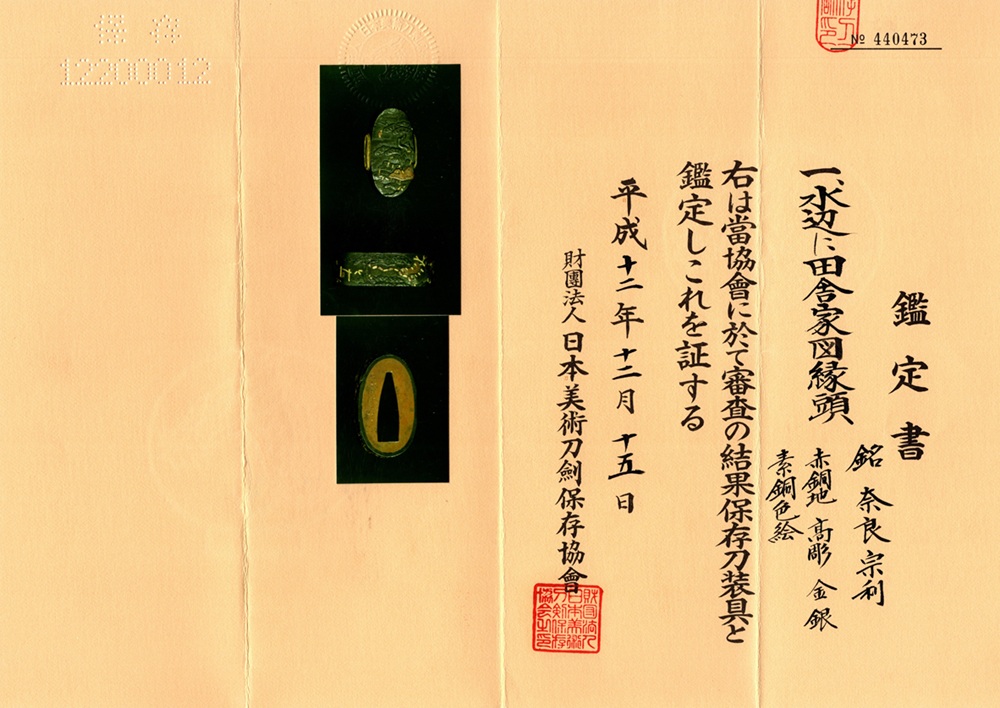 № 440473
鑑定書
一、水辺に田舎家図縁頭
銘 奈良宗利
赤銅地 高彫 金銀
素銅色絵
右は當協會に於て審査の結果保存刀装具と
鑑定しこれを証する
平成十二年十二月十五日
財團法人日本美術刀劍保存協會
財団法人
日本美術
刀剣保存
協会之印
保存
12200012